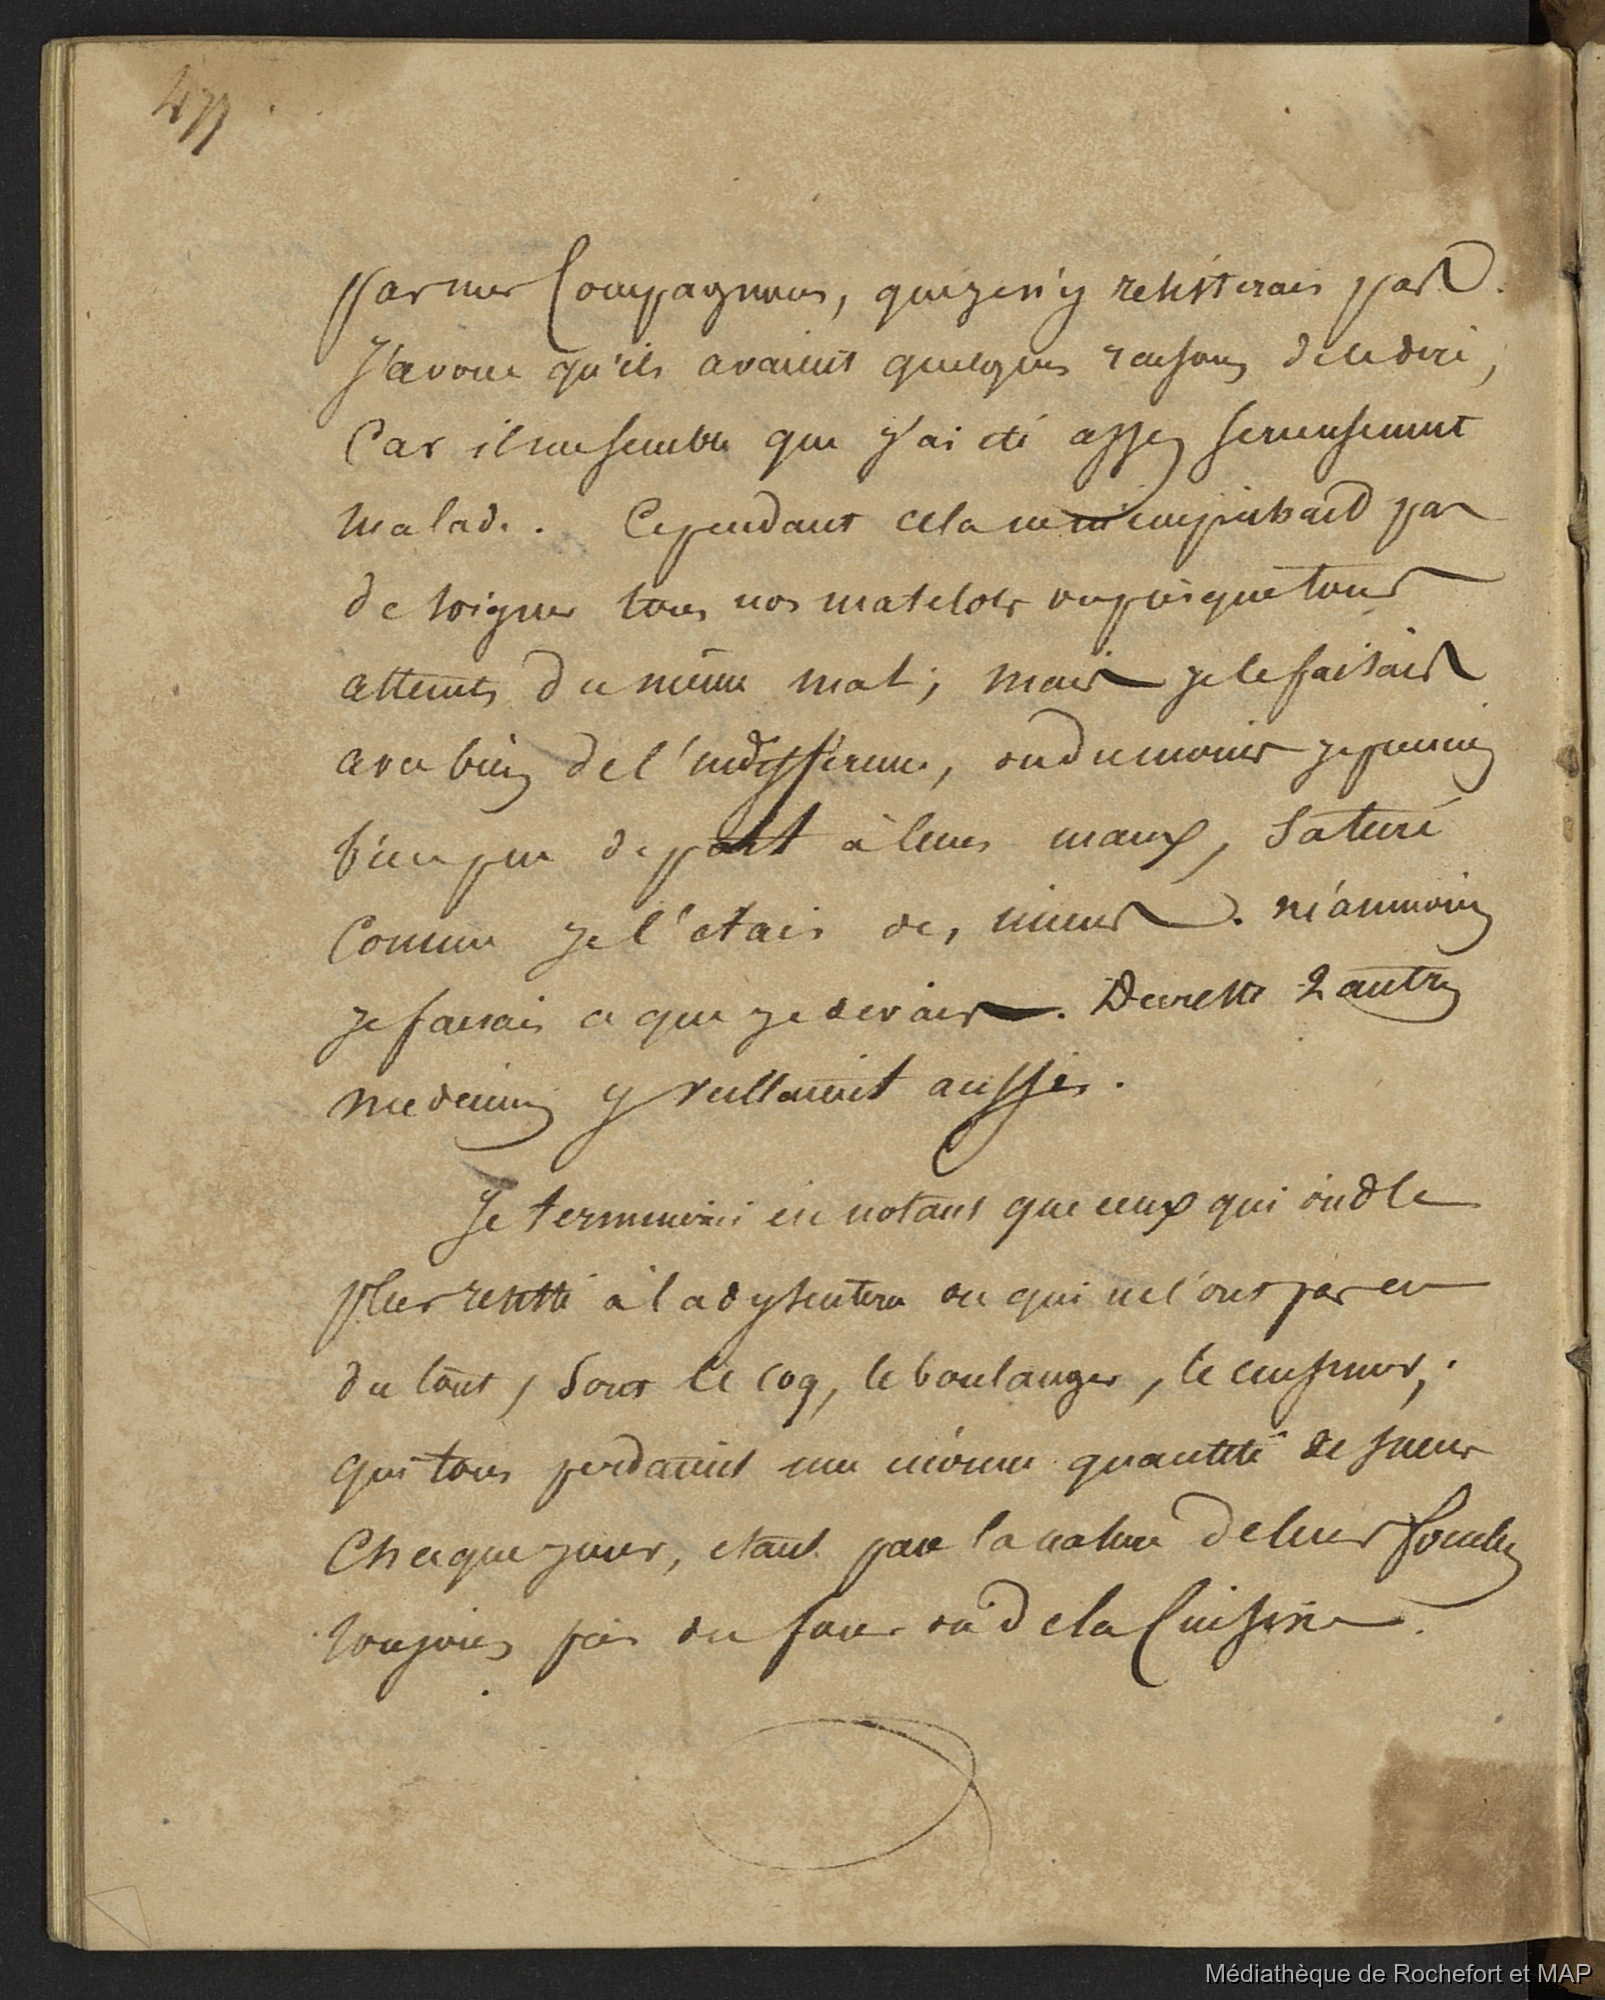 477
par mes Compagnons, que je n'y resisterais pas.
J'avoue qu'ils avaient quelques raisons de le dire,
Car il me semble que j'ai été assez serieusement
malade. Cependant cela ne m'empêchait pas
de soigner tous nos matelots ou presque tous
atteints du même mal; mais je le faisais
avec bien de l'indifférence, ou du moins je prenais
bien peu de part à leurs maux, saturé
Comme je l'etais de, miens. néanmoins
je faisais ce que je devais. Dureste 2 autres
medecins y veillaient aussi.
Je terminerai en notant que ceux qui ont le
plus resisté à la dysenterie ou qui ne l'ont pas eu
du tout, sont le coq, le boulanger, le cuisinier,
qui tous perdaient une énorme quantité de sueur
Chaque jour, etant par la nature de leurs fonctions
toujours près du four ou de la Cuisine.
Médiathèque de Rochefort et MAP